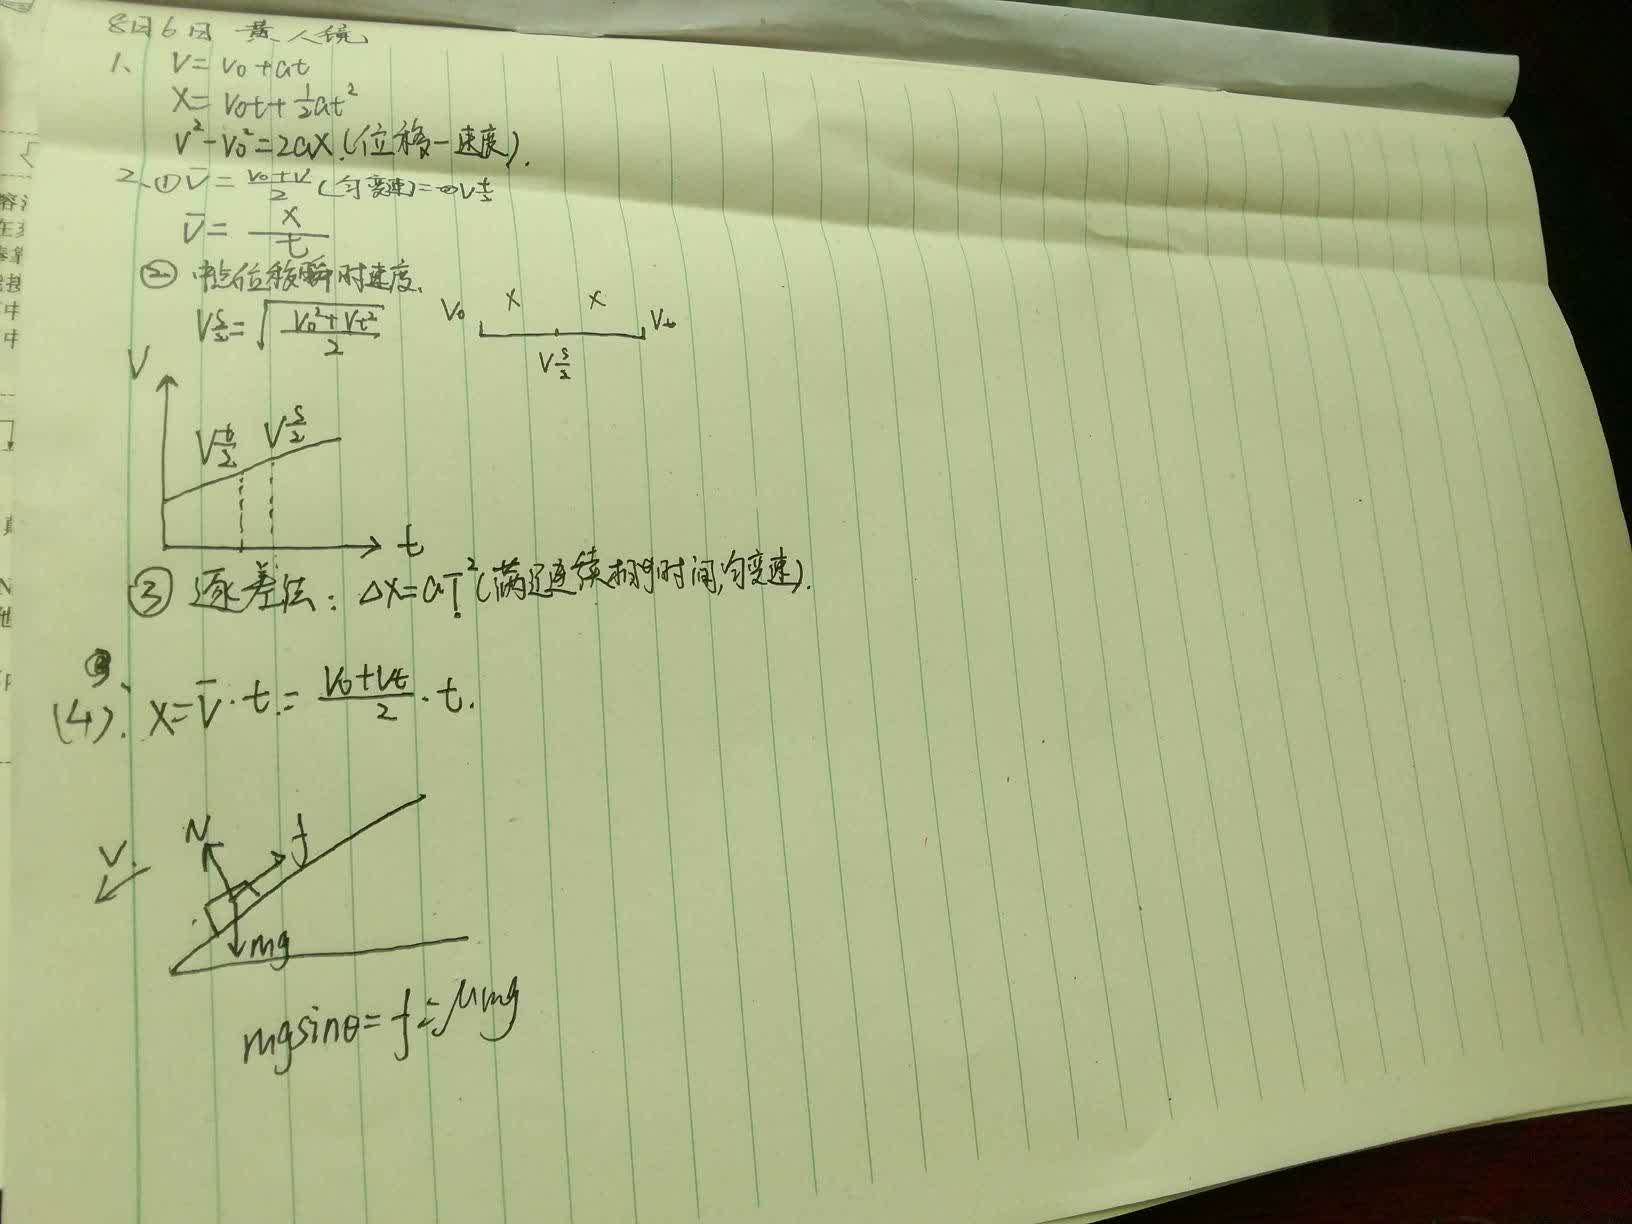 8月6日 黄人镜
1、 V=V₀+at
X=V₀t+½at²
V²-V₀²=2aX.(位移-速度).
2、① V̄=(V₀+V)/2 (匀变速)=V t/2
V̄=X/t
② 中点位移瞬时速度.
V s/2=√((V₀²+Vt²)/2)
V₀ X X Vt
V s/2
V
V t/2 V s/2
t
③ 逐差法: ΔX=aT²(满足连续相等时间,匀变速).
(4). X=V̄·t=(V₀+Vt)/2·t.
N f
V.
mg
mgsinθ=f=μmg